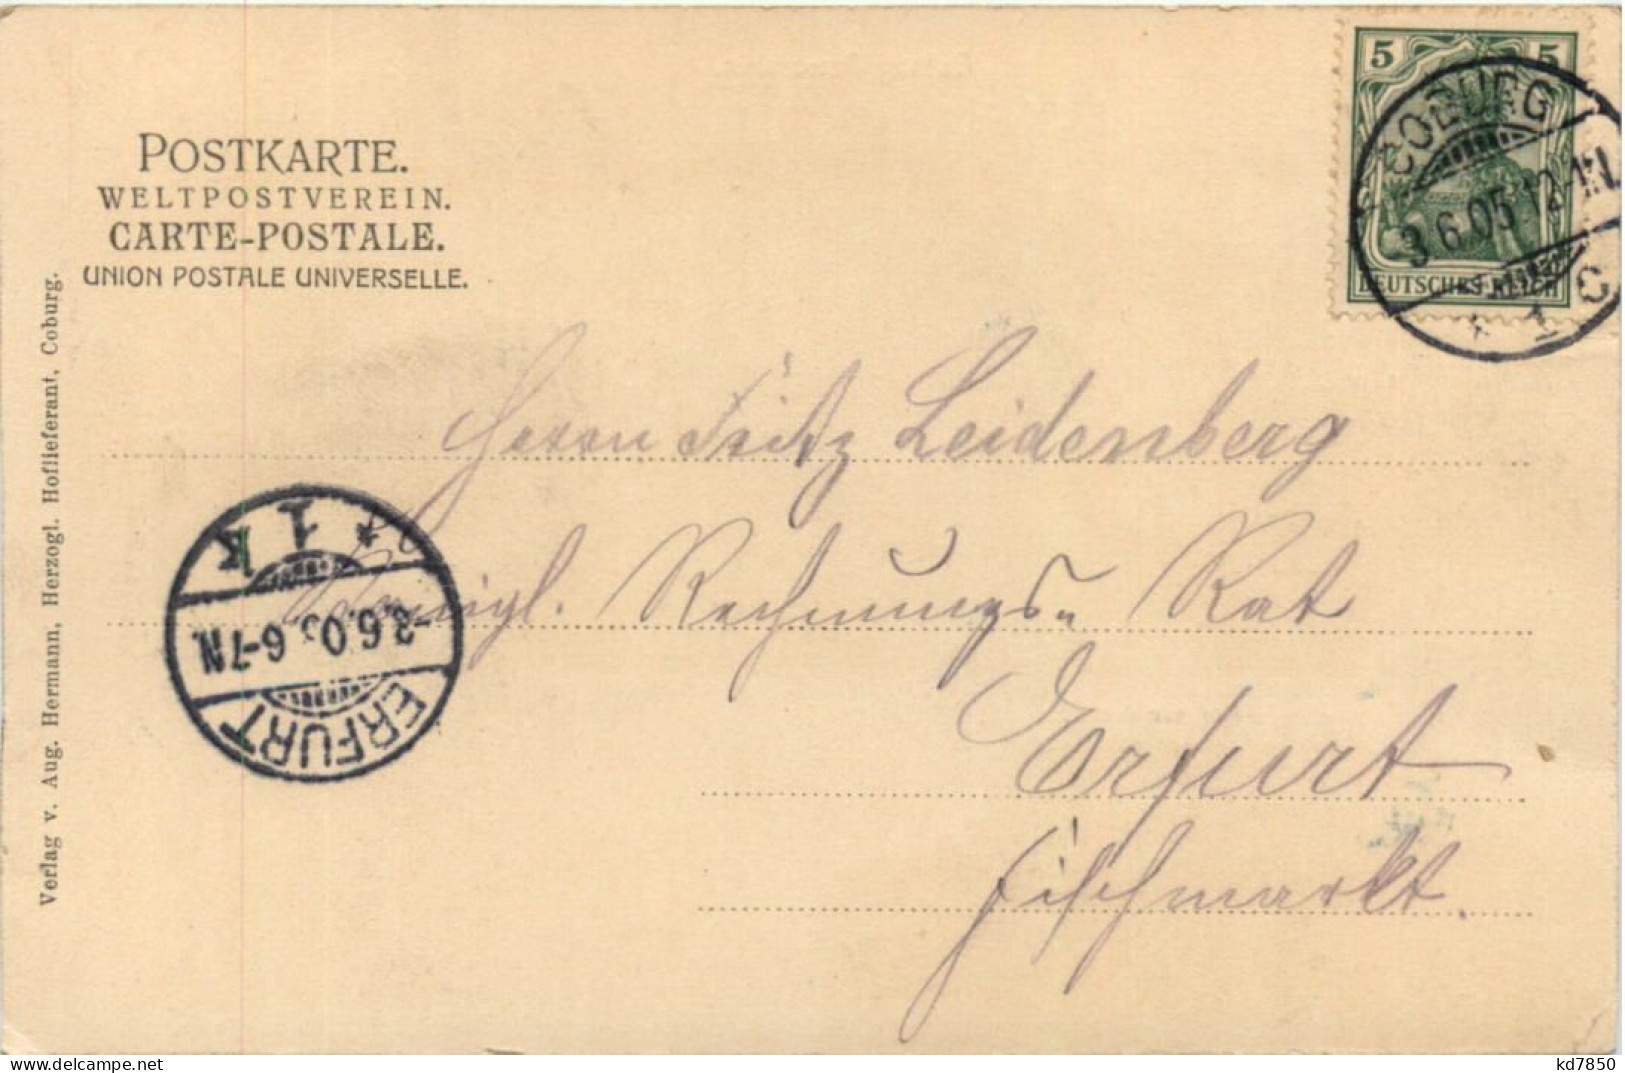 POSTKARTE.
WELTPOSTVEREIN.
CARTE-POSTALE.
UNION POSTALE UNIVERSELLE.
5 5
DEUTSCHES REICH
COBURG
3.6.05.12-1N.
* 1 C
Herrn Fritz Leidenberg
Königl. Rechnungs- Rat
Erfurt
Fischmarkt.
ERFURT
-3.6.05. 6-7N.
* 1 K
Verlag v. Aug. Hermann, Herzogl. Hoflieferant, Coburg.
kd7850